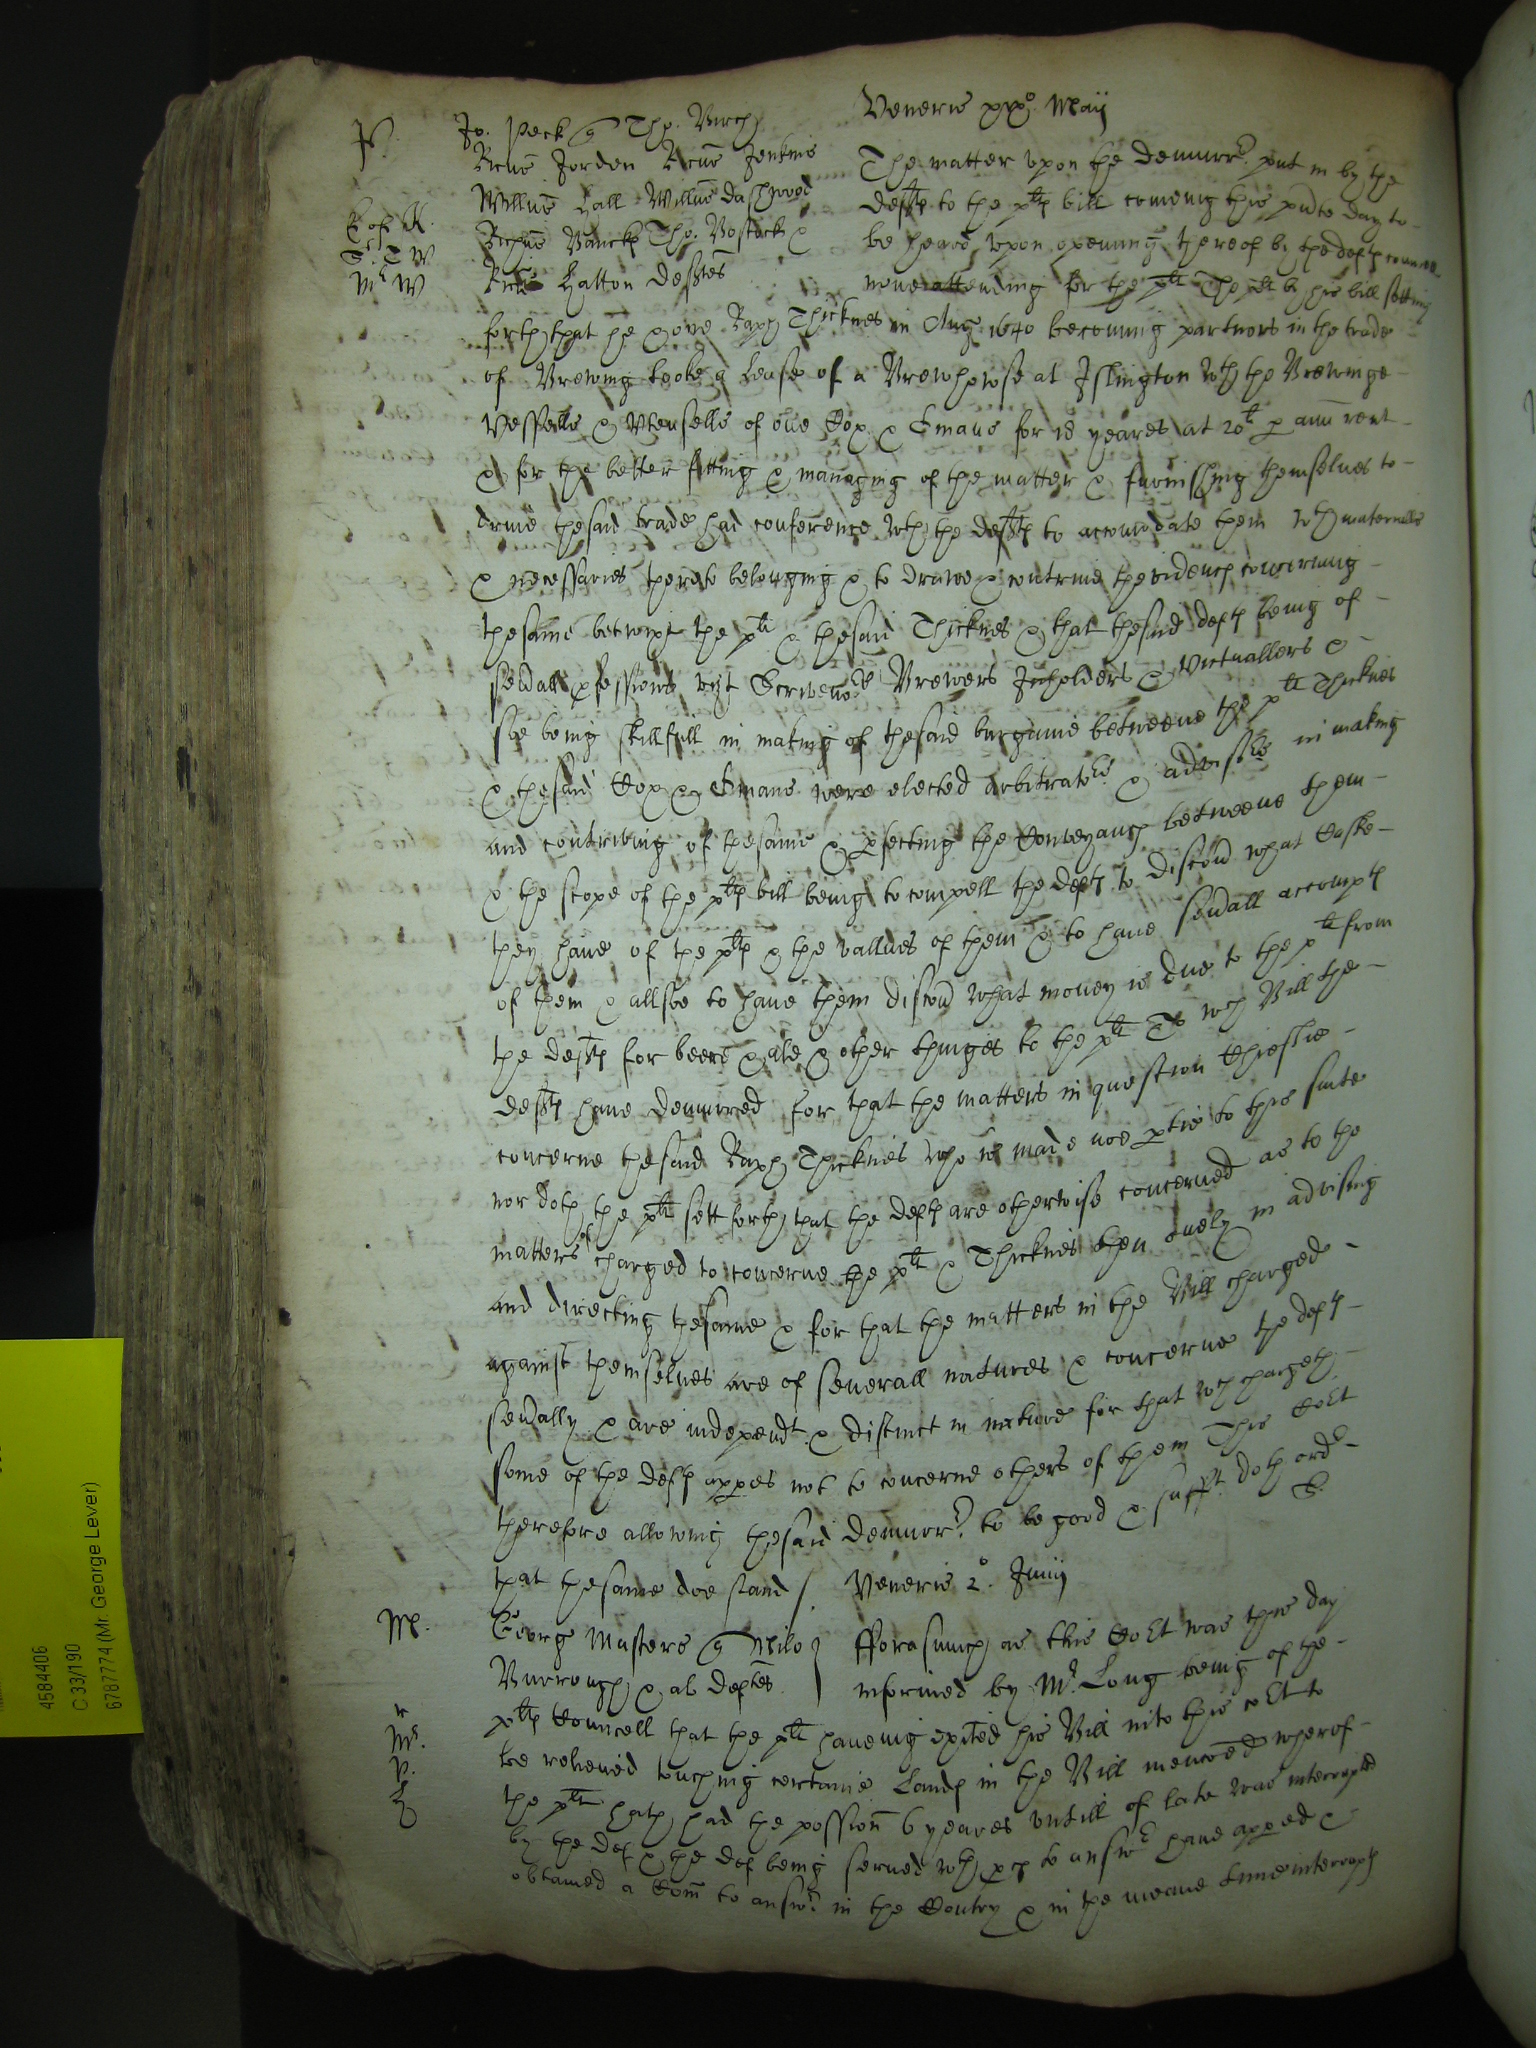 Veneris xxx° Maij
P. Jo. Peck q Tho. Birch
Ricus Jorden Ricus Jenkins The matter vpon the demurr. put in by the
Willus Hall Willus Dashwood deftes to the pltes bill comeing this pnte day to
E of K. Tho. Bostock & be heard vpon opening thereof by the deftes councell
S. T W
Mr W Hatton defendtes none attending for the plt The plt by his bill setting
forth that he & one Raph Thicknes in Aug 1640 becoming partners in the trade
of Brewing tooke a Lease of a Brewhowse at Islington wth the Brewinge
vessells & vtensells of one Cox & Emans for 18 yeares at 20li p ann rent
& for the better fitting & managing of the matter & furnishing themselues to
driue thesaid trade had conference wth the deftes to accomodate them wth materialls
& necessaries thereto belonging & to drawe & contriue thevidences concerning
thesame betwixt the plt & thesaid Thicknes & that thesaid deftes being of
seuall pfessions vizt Scriveno Brewers Inholders & Victuallers &
soe being skillfull in making of thesaid bargaine betweene the plt Thicknes
& thesaid Cox & Emans were elected arbitrators & advisers in making
and contriving of thesame & pfecting the Conveyances betweene them
& the scope of the pltes bill being to compell the deftes to discou what Caske
they haue of the pltes & the vallues of them & to haue seuall accompts
of them & allsoe to haue them discou what money is due to the plt from
the deftes for beere & ale & other thinges to the plt To wch Bill the
deftes haue demurred for that the matters in question chieflie
concerne thesaid Raph Thicknes who is made noe ptie to this suite
nor doth the plt sett forth that the deftes are otherwise concerned as to the
matters charged to concerne the plt & Thicknes then onely in advising
and directing thesame & for that the matters in the Bill charged
against themselues are of severall natures & concerne the deftes
seually & are independt & distinct in nature for that wch chargeth
some of the deftes appes not to concerne others of them This Cort
therefore allowing thesaid demurr. to be good & sufft. doth ord
that thesame doe stand /. S.
Veneris 2° Junij
M. George Masters q Milo fforasmuch as this Cort was this day
Burrough & al deftes informed by Mr. Long being of the
Mr. pltes Councell that the plt haueing exited his Bill into this cort to
P. be releiued touching certaine Landes in the Bill menconed wherof
the plt hath had the possion 6 yeares vntill of late was interrupted
by the def & the def being serued wth pces to answr haue apped &
obtained a Com to answr. in the Contry & in the meane time interrupts
4584406
C 33/190
6787774 (Mr. George Lever)